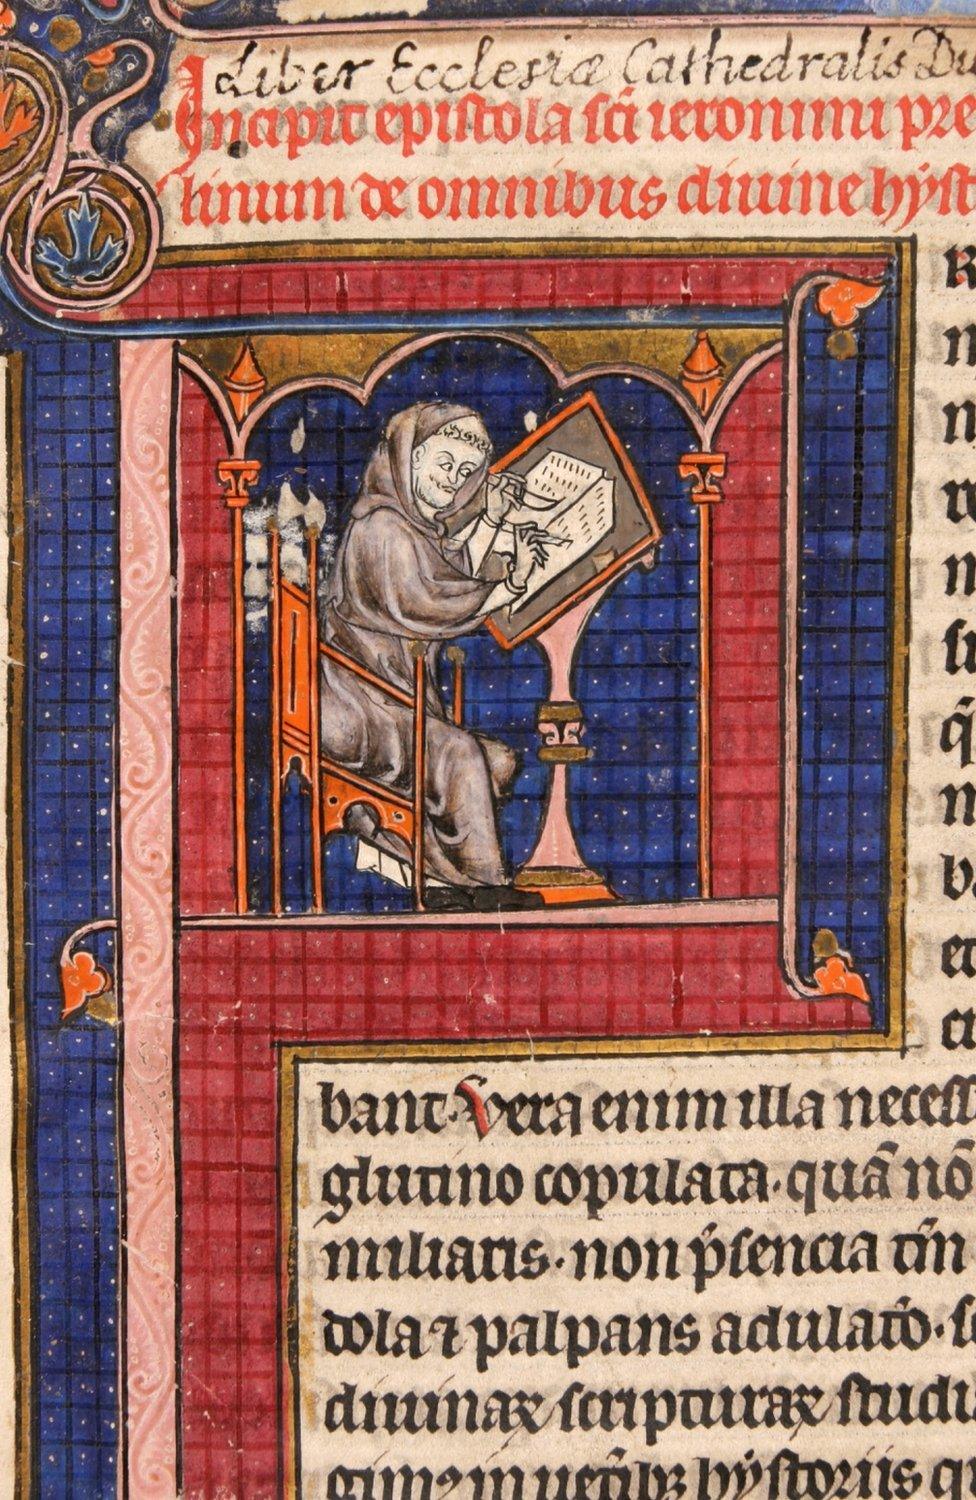 Liber Ecclesiæ Cathedralis Du
Incipit epistola sc̄i ieronimi pre
linum de omnibus diuine hẏst
R
n
m
n
ſu
q̄
n
v
et
ci
bant. Vera enim illa neceſſ
glutino copulata. quā nō
miliaris. non p̄sencia tm̄
dola ⁊ palpans adulatō. s
diuinaꝝ ſcripturaꝝ ſtudi
gimꝰ in uet̄ibꝫ hẏſtoriis q